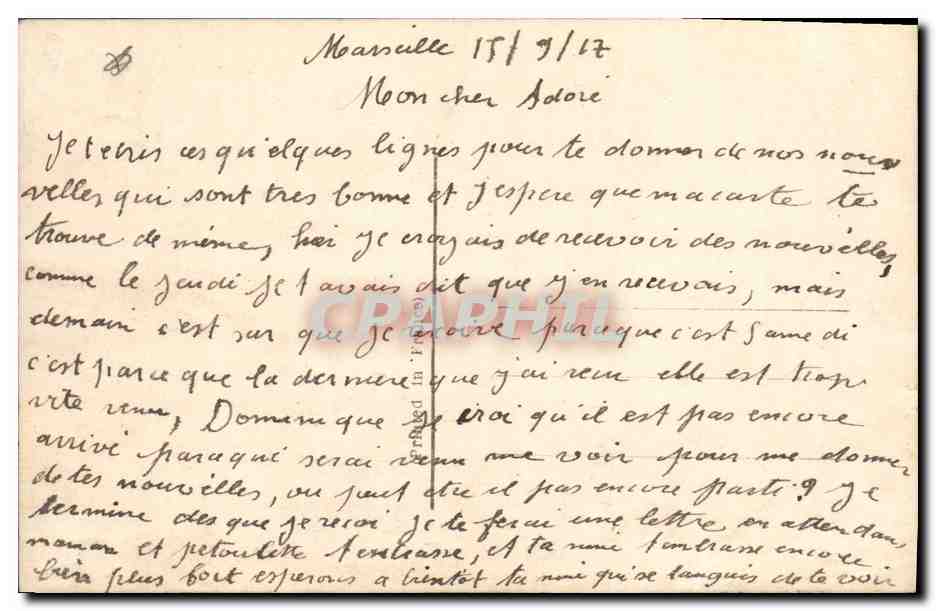 Marseille 15/9/17
Mon cher Adoré
Je t ecris ces quelques lignes pour te donner de nos nou
velles qui sont tres bonne et j espere que ma carte te
trouve de même, hier je croyais de recevoir des nouvelles,
comme le jeudi je t avais dit que j en recevais, mais
demain c'est sur que je recoive parceque c'est Samedi
c'est parce que la derniere que j'ai recu elle est trop
vite venu, Dominique je croi qu'il est pas encore
arrivé parcequi serai venu me voir pour me donner
de tes nouvelles, ou peut etre il pas encore parti? Je
termine des que je recoi je te ferai une lettre en attendans
maman et petoulette t embrasse, et ta nini t embrasse encore
bien plus fort esperons a bientot ta nini qui se languis de te voir
Printed in France
CRAPHIL